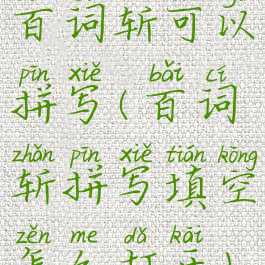 百词斩可以
pīn xiě bǎi cí
拼写(百词
zhǎn pīn xiě tián kōng
斩拼写填空
zěn me dǎ kāi